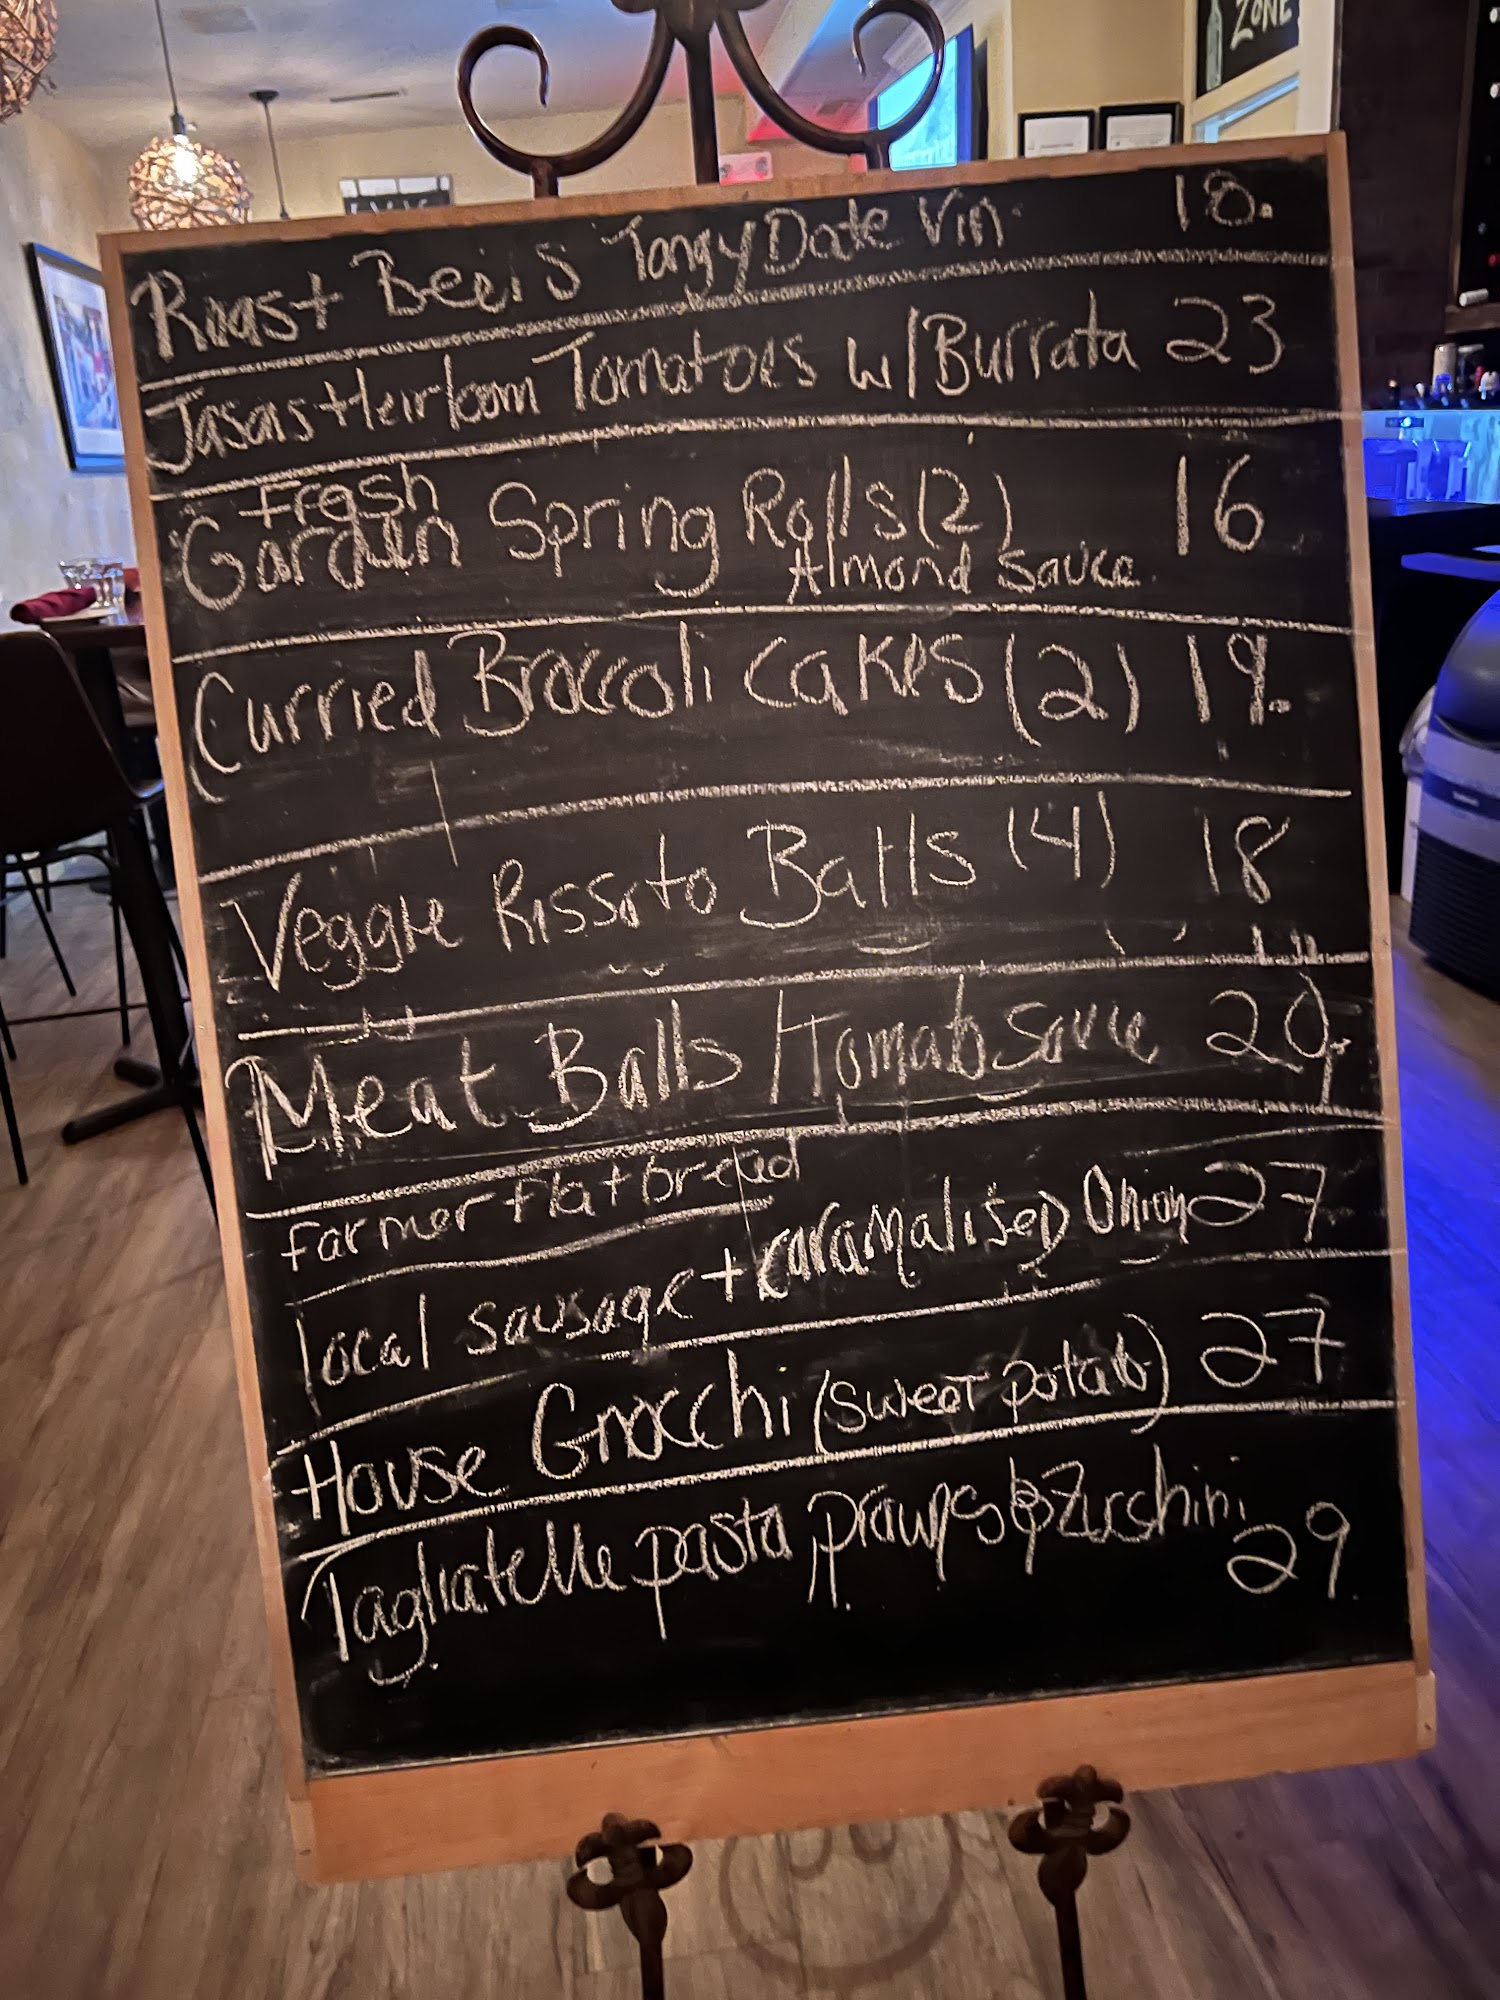 ZONE
Roast Beets Tangy Date Vin 18.
Jasons Heirloom Tomatoes w/Burrata 23
Fresh
Garden Spring Rolls (2) 16
Almond Sauce
Curried Broccoli Cakes (2) 19.
Veggie Rissoto Balls (4) 18
Meat Balls / tomato sauce 20.
farmer flatbread
local sausage + caramalised Onion 27
House Gnocchi (sweet potato) 27
Tagliatelle pasta prawns & Zucchini
29.